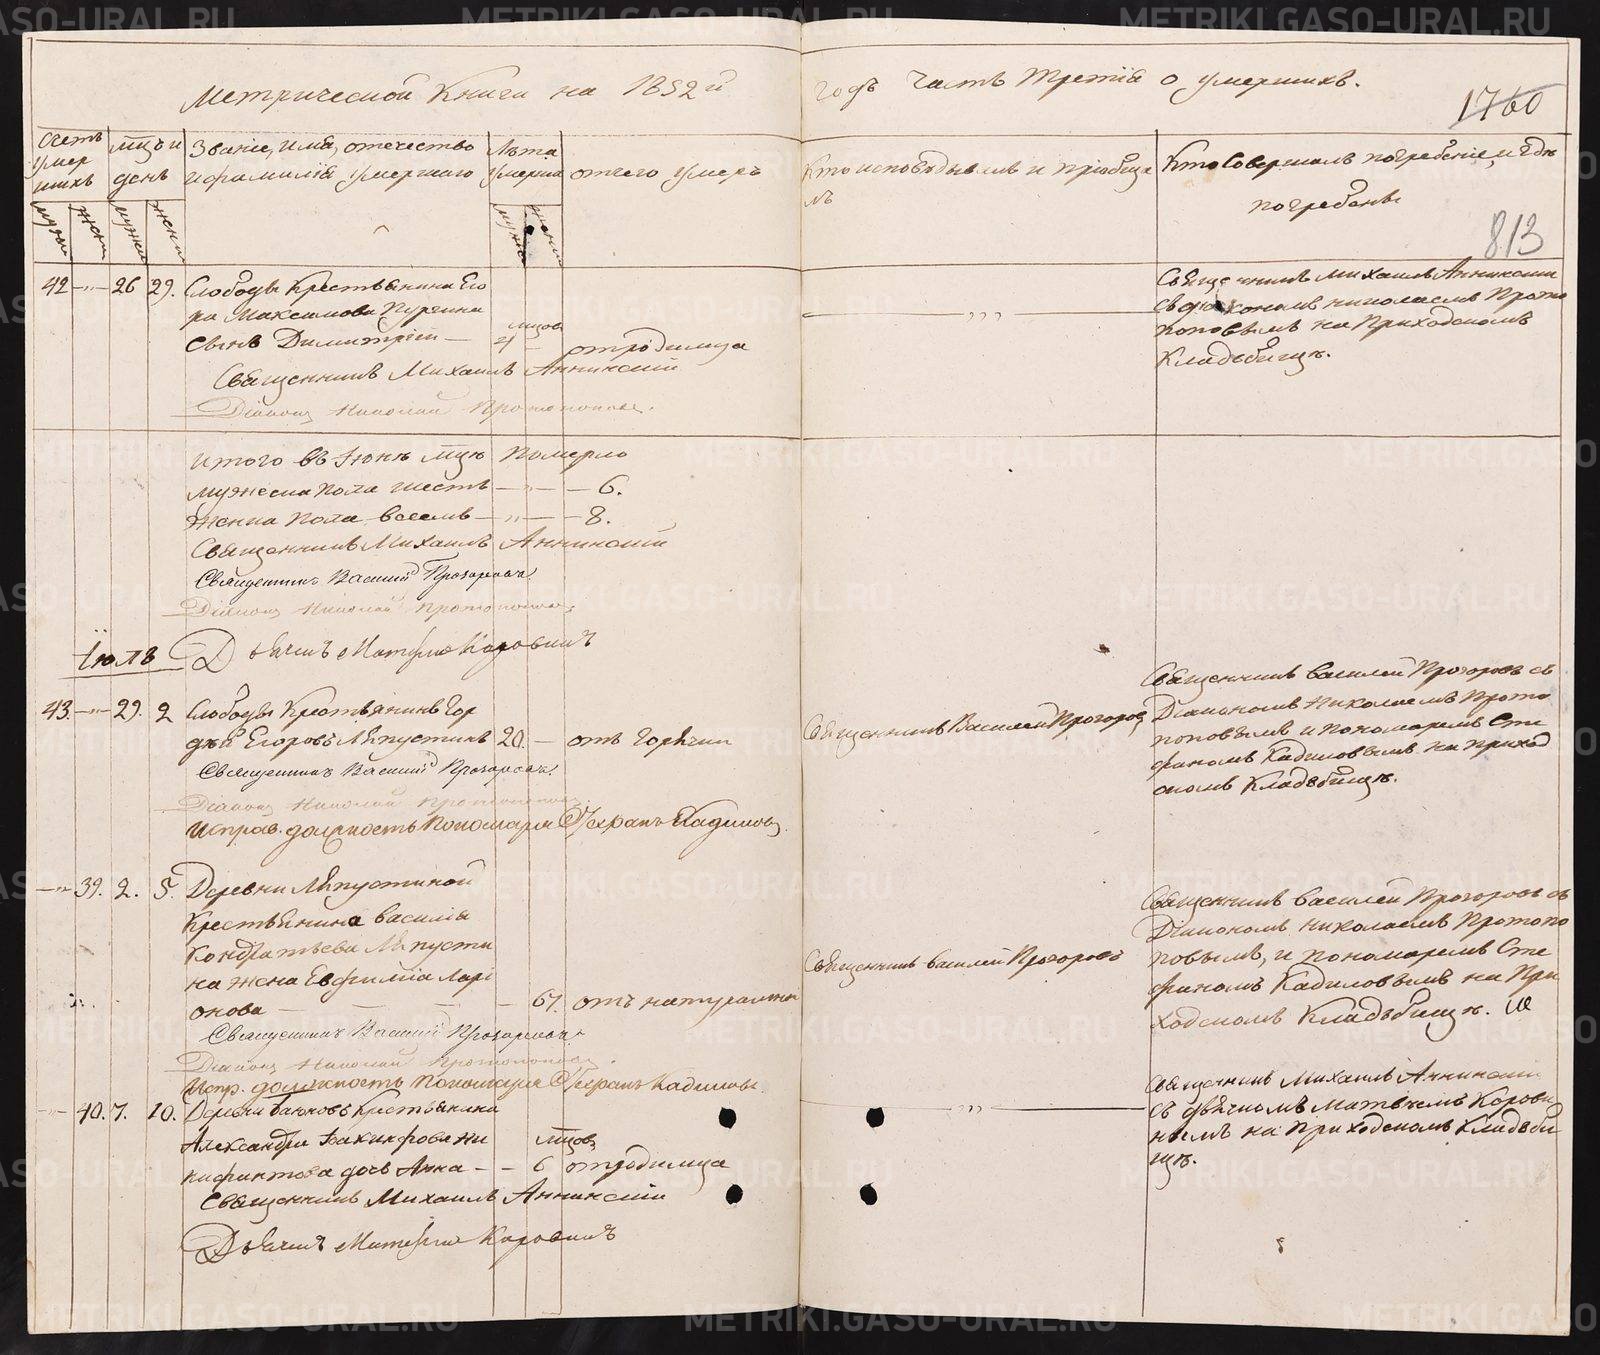 Метрической Книги на 1852й годъ Часть третія о умершихъ.
1760
813
Счетъ умершихъ
мцъ и день
Званіе, имя, отечество и фамилія умершаго
Лѣта умерша
отчего умеръ
Кто исповѣдывалъ и пріобщалъ
Кто Совершалъ погребеніе, и гдѣ погребены
мужи
жен
мужи
жени
42 —„— 26 29. Слободы Крестьянина Его
ра Максимова Пургина
Сынъ Димитрій — мцов — отродимца
Священникъ Михаилъ Аннинскій
Діаконъ Николай Протопоповъ.
— „„ —
Священникъ Михаилъ Аннинскій
съ діакономъ николаемъ Прото
поповымъ на Приходскомъ
Кладьбищѣ.
итого въ Іюнѣ мцѣ Померло
мужеска пола шесть — „ — 6.
женска пола восемь — „ — 8.
Священникъ Михаилъ Аннинскій
Священникъ Василій Прозоровъ
Діаконъ Николай Протопоповъ
Дьячекъ Матвей Коровинъ
Іюль
43. —„— 29. 2 Слободы Крестьянинъ Гор
дѣй Егоровъ Ляпустинъ 20. — отъ Горячки
Священникъ Василій Прозоровъ
Діаконъ Николай Протопоповъ
Исправ. должность Пономаря Стефанъ Кадиловъ
Священникъ Василей Прозоровъ
Священникъ Василей Прозоровъ съ
Діакономъ Николаемъ Прото
поповымъ и пономаремъ Сте
фаномъ Кадиловымъ на приход
скомъ Кладьбищѣ.
—„ 39. 2. 5. Деревни Ляпустиной
Крестьянина Василія
Кондратьева Ляпусти
на жена Евфимія Лари
онова — — — — 67. отъ натуральной
Священникъ Василій Прозоровъ
Діаконъ Николай Протопоповъ.
Испр. должность пономаря Стефанъ Кадиловъ
Священникъ Василей Прозоровъ
Священникъ Василей Прозоровъ съ
Діакономъ Николаемъ Протопо
повымъ, и пономаремъ Сте
фаномъ Кадиловымъ на При
ходскомъ Кладьбищѣ.
—„— 40. 7. 10. Деревни Баюковъ Крестьянина
Александра Іакинфова Ни
кифинтова дочь Анна — — мцов 6 отродимца
Священникъ Михаилъ Аннинскій
Дьячекъ Матвей Коровинъ
— „„ —
Священникъ Михаилъ Аннинскій
съ дьячкомъ Матвѣемъ Корови
нымъ на Приходскомъ Кладьби
щѣ.
METRIKI.GASO-URAL.RU